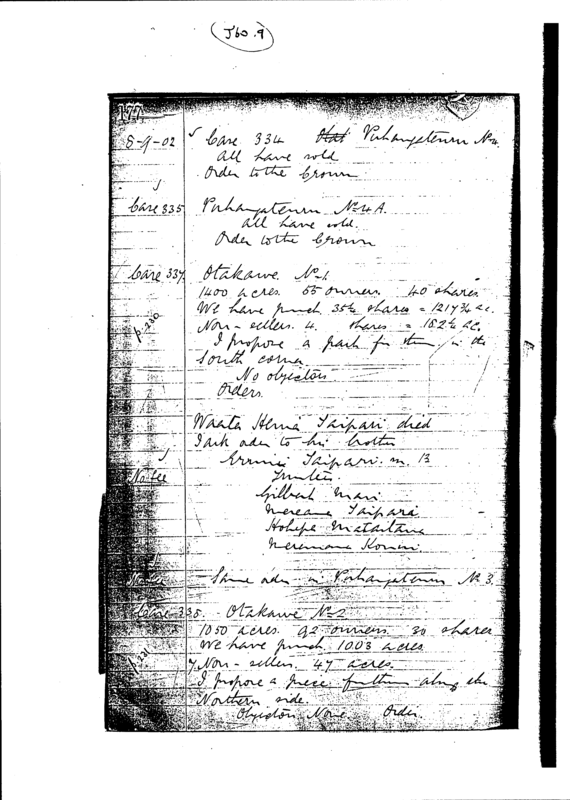 J60.9
177
8-9-02 Case 334 Puhangateuru No 4
All have sold
Order to the Crown
Case 335 Puhangateuru No 4A.
All have sold.
Order to the Crown
Case 337 Otakawe No 1
1400 acres 55 owners 40 shares
p. 230 We have purch 35½ shares = 1217¾ ac.
Non-sellers 4 shares = 182¼ ac.
I propose a part for them in the
South corner
No objectors
Orders.
Waata Taipari died
I ask order to his brother
Taipari m. 13
Notice Trustees
Gilbert Mair
Mereana Taipari
Hohepa Mataitaua
Meremana Konui
Same order in Puhangateuru No 3.
Case 338. Otakawe No 2
1050 acres. 92 owners 30 shares
We have purch 1003 acres
p. 231 Non-sellers 47 acres.
I propose a piece along the
Northern side.
Objectors None. Order.